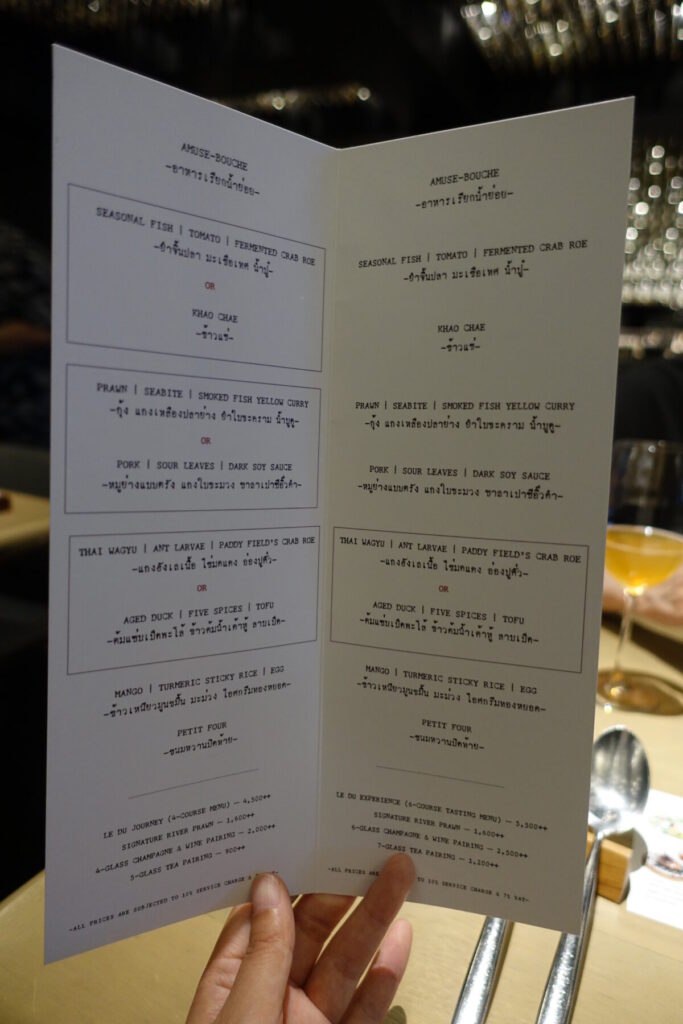 AMUSE-BOUCHE
-อาหารเรียกน้ำย่อย-
SEASONAL FISH | TOMATO | FERMENTED CRAB ROE
-ยำจิ้นปลา มะเขือเทศ น้ำปู๋-
OR
KHAO CHAE
-ข้าวแช่-
PRAWN | SEABITE | SMOKED FISH YELLOW CURRY
-กุ้ง แกงเหลืองปลาย่าง ยำใบชะคราม น้ำบูดู-
OR
PORK | SOUR LEAVES | DARK SOY SAUCE
-หมูย่างแบบตรัง แกงใบชะมวง ซาลาเปาซีอิ๊วดำ-
THAI WAGYU | ANT LARVAE | PADDY FIELD'S CRAB ROE
-แกงอ่อมเนื้อ ไข่มดแดง อ่องปูคั่ว-
OR
AGED DUCK | FIVE SPICES | TOFU
-ต้มแซ่บเป็ดพะโล้ ข้าวต้มน้ำเต้าหู้ ลาบเป็ด-
MANGO | TURMERIC STICKY RICE | EGG
-ข้าวเหนียวมูนขมิ้น มะม่วง ไอศกรีมทองหยอด-
PETIT FOUR
-ขนมหวานปิดท้าย-
LE DU JOURNEY (4-COURSE MENU) — 4,500++
SIGNATURE RIVER PRAWN — 1,600++
4-GLASS CHAMPAGNE & WINE PAIRING — 2,000++
5-GLASS TEA PAIRING — 900++
-ALL PRICES ARE SUBJECTED TO 10% SERVICE CHARGE &
AMUSE-BOUCHE
-อาหารเรียกน้ำย่อย-
SEASONAL FISH | TOMATO | FERMENTED CRAB ROE
-ยำจิ้นปลา มะเขือเทศ น้ำปู๋-
KHAO CHAE
-ข้าวแช่-
PRAWN | SEABITE | SMOKED FISH YELLOW CURRY
-กุ้ง แกงเหลืองปลาย่าง ยำใบชะคราม น้ำบูดู-
PORK | SOUR LEAVES | DARK SOY SAUCE
-หมูย่างแบบตรัง แกงใบชะมวง ซาลาเปาซีอิ๊วดำ-
THAI WAGYU | ANT LARVAE | PADDY FIELD'S CRAB ROE
-แกงอ่อมเนื้อ ไข่มดแดง อ่องปูคั่ว-
OR
AGED DUCK | FIVE SPICES | TOFU
-ต้มแซ่บเป็ดพะโล้ ข้าวต้มน้ำเต้าหู้ ลาบเป็ด-
MANGO | TURMERIC STICKY RICE | EGG
-ข้าวเหนียวมูนขมิ้น มะม่วง ไอศกรีมทองหยอด-
PETIT FOUR
-ขนมหวานปิดท้าย-
LE DU EXPERIENCE (6-COURSE TASTING MENU) — 5,500++
SIGNATURE RIVER PRAWN — 1,600++
6-GLASS CHAMPAGNE & WINE PAIRING — 2,500++
7-GLASS TEA PAIRING — 1,200++
-ALL PRICES ARE TO 10% SERVICE CHARGE & 7% VAT-